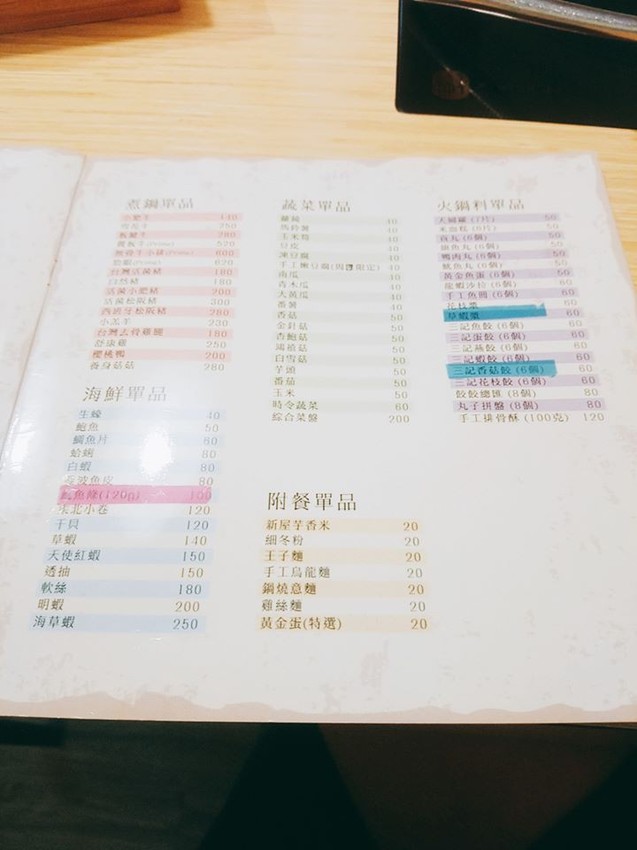 煮鍋單品
小肥羊 140
雪花牛 250
板腱牛 280
翼板牛(Prime) 520
無骨牛小排(Prime) 600
620
台灣活菌豬 180
自然豬 180
活菌小肥豬 200
活菌松阪豬 300
西班牙松阪豬 280
小羔羊 230
台灣去骨雞腿 180
舒康雞 250
櫻桃鴨 200
養身菇菇 280
海鮮單品
生蠔 40
鮑魚 50
鯛魚片 60
蛤蜊 80
白蝦 80
魚皮 80
魷魚條(120g) 100
北小卷 120
干貝 120
草蝦 140
天使紅蝦 150
透抽 150
軟絲 180
明蝦 200
海草蝦 250
蔬菜單品
蘿蔔 40
馬鈴薯 40
玉米筍 40
豆皮 40
凍豆腐 40
手工嫩豆腐 40
南瓜 40
青木瓜 40
大黃瓜 40
番薯 40
香菇 50
金針菇 50
杏鮑菇 50
鴻禧菇 50
白雪菇 50
芋頭 50
番茄 50
玉米 50
時令蔬菜 60
綜合菜盤 200
附餐單品
新屋芋香米 20
細冬粉 20
王子麵 20
手工烏龍麵 20
鍋燒意麵 20
雞絲麵 20
黃金蛋(特選) 20
火鍋料單品
天婦羅 (7片) 50
米血糕 (6片) 50
貢丸 (6個) 50
旗魚丸 (6個) 50
鴨肉丸 (6個) 50
魷魚丸 (6個) 50
黃金魚蛋 (6個) 50
龍蝦沙拉 (6個) 60
手工魚餃 (6個) 60
花枝漿 60
草蝦漿 60
三記魚餃 (6個) 50
三記蛋餃 (6個) 60
三記燕餃 (6個) 60
三記蝦餃 (6個) 60
三記香菇餃 (6個) 60
三記花枝餃 (6個) 60
餃餃總匯 (8個) 80
丸子拼盤 (8個) 80
手工排骨酥 (100克) 120